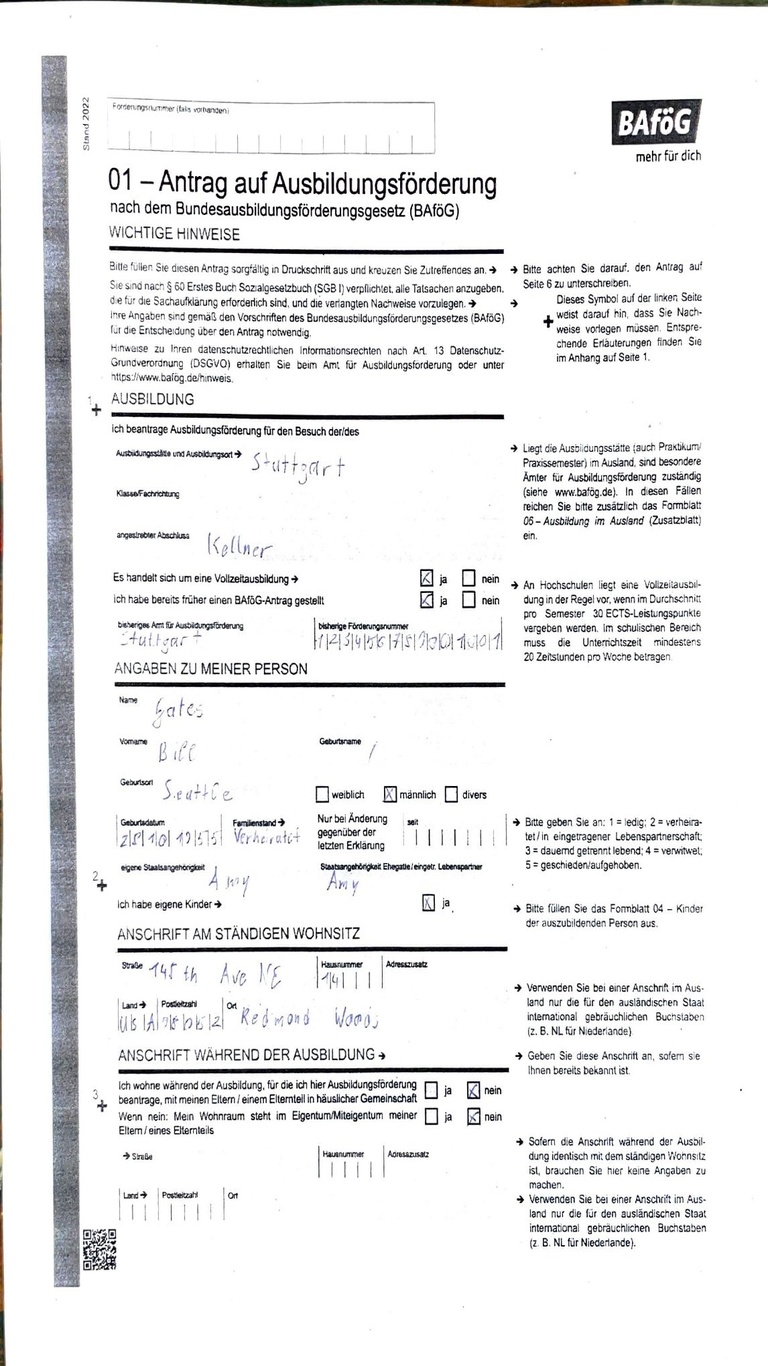 Stand 2022
Förderungsnummer (falls vorhanden)
BAföG
mehr für dich
01 – Antrag auf Ausbildungsförderung
nach dem Bundesausbildungsförderungsgesetz (BAföG)
WICHTIGE HINWEISE
Bitte füllen Sie diesen Antrag sorgfältig in Druckschrift aus und kreuzen Sie Zutreffendes an. →
Sie sind nach § 60 Erstes Buch Sozialgesetzbuch (SGB I) verpflichtet, alle Tatsachen anzugeben,
die für die Sachaufklärung erforderlich sind, und die verlangten Nachweise vorzulegen. →
Ihre Angaben sind gemäß den Vorschriften des Bundesausbildungsförderungsgesetzes (BAföG)
für die Entscheidung über den Antrag notwendig.
Hinweise zu Ihren datenschutzrechtlichen Informationsrechten nach Art. 13 Datenschutz-
Grundverordnung (DSGVO) erhalten Sie beim Amt für Ausbildungsförderung oder unter
https://www.bafög.de/hinweis.
→ Bitte achten Sie darauf, den Antrag auf
Seite 6 zu unterschreiben.
→ Dieses Symbol auf der linken Seite
+ weist darauf hin, dass Sie Nach-
weise vorlegen müssen. Entspre-
chende Erläuterungen finden Sie
im Anhang auf Seite 1.
1+ AUSBILDUNG
Ich beantrage Ausbildungsförderung für den Besuch der/des
Ausbildungsstätte und Ausbildungsort → Stuttgart
Klasse/Fachrichtung
angestrebter Abschluss Kellner
→ Liegt die Ausbildungsstätte (auch Praktikum/
Praxissemester) im Ausland, sind besondere
Ämter für Ausbildungsförderung zuständig
(siehe www.bafög.de). In diesen Fällen
reichen Sie bitte zusätzlich das Formblatt
06 – Ausbildung im Ausland (Zusatzblatt)
ein.
Es handelt sich um eine Vollzeitausbildung → ja nein
Ich habe bereits früher einen BAföG-Antrag gestellt ja nein
→ An Hochschulen liegt eine Vollzeitausbil-
dung in der Regel vor, wenn im Durchschnitt
pro Semester 30 ECTS-Leistungspunkte
vergeben werden. Im schulischen Bereich
muss die Unterrichtszeit mindestens
20 Zeitstunden pro Woche betragen.
bisheriges Amt für Ausbildungsförderung bisherige Förderungsnummer
Stuttgart
ANGABEN ZU MEINER PERSON
Name Gates
Vorname Bill Geburtsname /
Geburtsort Seattle weiblich männlich divers
Geburtsdatum Familienstand → Nur bei Änderung seit
gegenüber der
letzten Erklärung
Verheiratet
→ Bitte geben Sie an: 1 = ledig; 2 = verheira-
tet/in eingetragener Lebenspartnerschaft;
3 = dauernd getrennt lebend; 4 = verwitwet;
5 = geschieden/aufgehoben.
2+ eigene Staatsangehörigkeit Staatsangehörigkeit Ehegatte/eingetr. Lebenspartner
Amy Amy
Ich habe eigene Kinder → ja,
→ Bitte füllen Sie das Formblatt 04 – Kinder
der auszubildenden Person aus.
ANSCHRIFT AM STÄNDIGEN WOHNSITZ
Straße 145 th Ave NE Hausnummer 14 Adresszusatz
Land → Postleitzahl Ort
USA Redmond Woods
→ Verwenden Sie bei einer Anschrift im Aus-
land nur die für den ausländischen Staat
international gebräuchlichen Buchstaben
(z. B. NL für Niederlande).
ANSCHRIFT WÄHREND DER AUSBILDUNG →
→ Geben Sie diese Anschrift an, sofern sie
Ihnen bereits bekannt ist.
3+ Ich wohne während der Ausbildung, für die ich hier Ausbildungsförderung
beantrage, mit meinen Eltern / einem Elternteil in häuslicher Gemeinschaft ja nein
Wenn nein: Mein Wohnraum steht im Eigentum/Miteigentum meiner
Eltern / eines Elternteils ja nein
→ Straße Hausnummer Adresszusatz
Land → Postleitzahl Ort
→ Sofern die Anschrift während der Ausbil-
dung identisch mit dem ständigen Wohnsitz
ist, brauchen Sie hier keine Angaben zu
machen.
→ Verwenden Sie bei einer Anschrift im Aus-
land nur die für den ausländischen Staat
international gebräuchlichen Buchstaben
(z. B. NL für Niederlande).